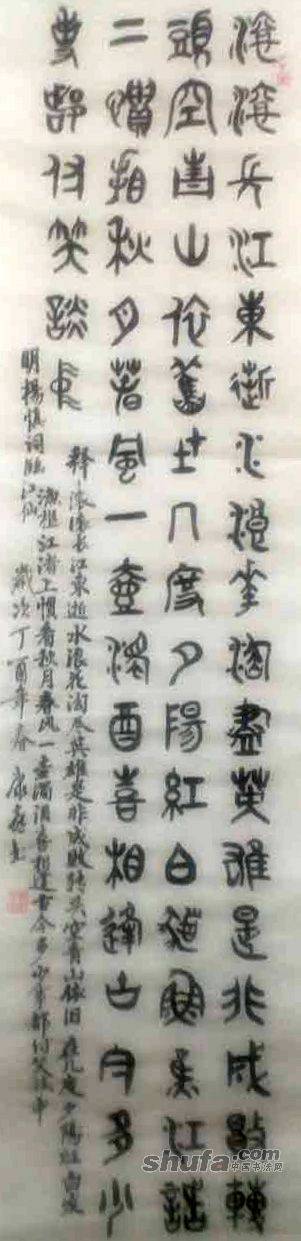 滚滚長江東逝水浪花淘盡英雄是非成敗轉
頭空青山依舊在几度夕陽紅白髮漁樵江渚
上慣看秋月春風一壺濁酒喜相逢古今多少
事都付笑談中
释 滚滚长江東逝水浪花淘尽英雄是非成败转头空青山依旧在几度夕陽红白发
渔樵江渚上惯看秋月春风一壶濁酒喜相逢古今多少事都付笑谈中
明楊慎词临江仙 歲次丁酉年春
shufa.com
中国书法网